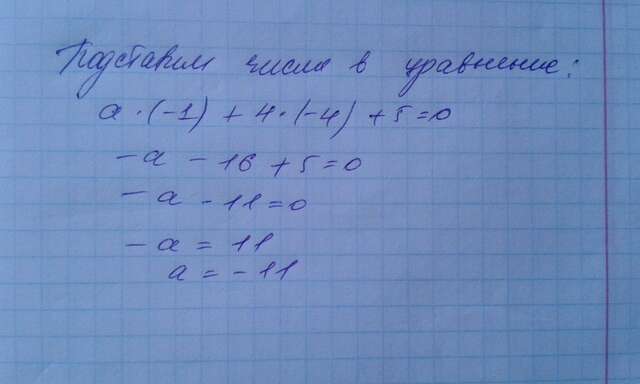 Подставим числа в уравнение:
a·(-1) + 4·(-4) + 5 = 0
-a - 16 + 5 = 0
-a - 11 = 0
-a = 11
a = -11